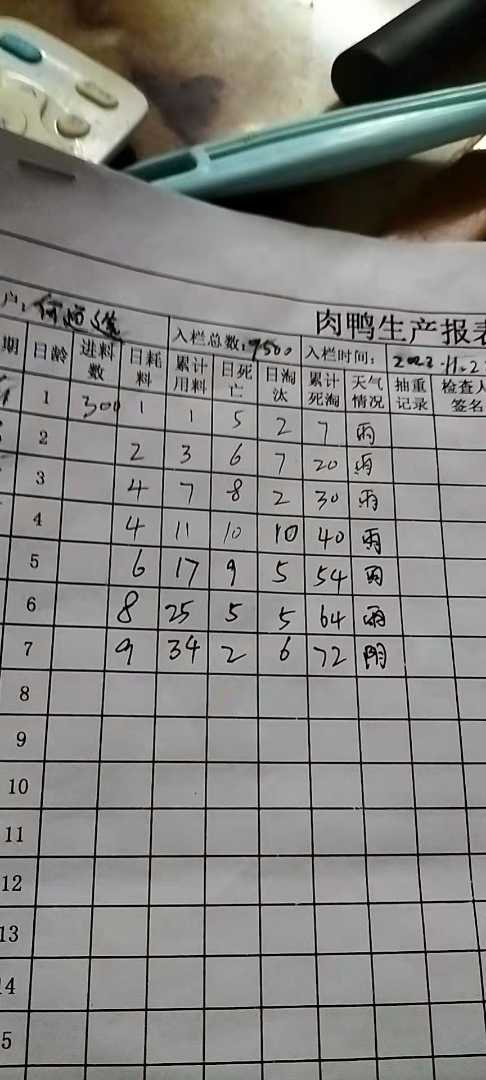 肉鸭生产报表
户：何
入栏总数：9500 入栏时间：2022.11.2
期 日龄 进料数 日耗料 累计用料 日死亡 日淘汰 累计死淘 天气情况 抽重记录 检查人签名
1 300 1 1 5 2 7 雨
2 2 3 6 7 20 雨
3 4 7 8 2 30 雨
4 4 11 10 10 40 雨
5 6 17 9 5 54 雨
6 8 25 5 5 64 雨
7 9 34 2 6 72 阴
8
9
10
11
12
13
14
5